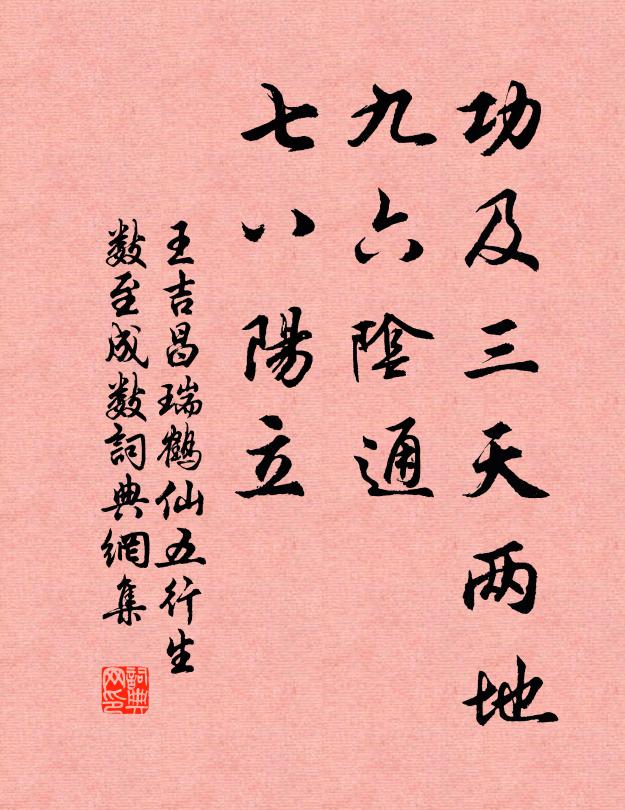 功及三天两地
九六陰通
七八陽立
王吉昌瑞鶴仙五行生
數至成數詞典網集
詞典网印